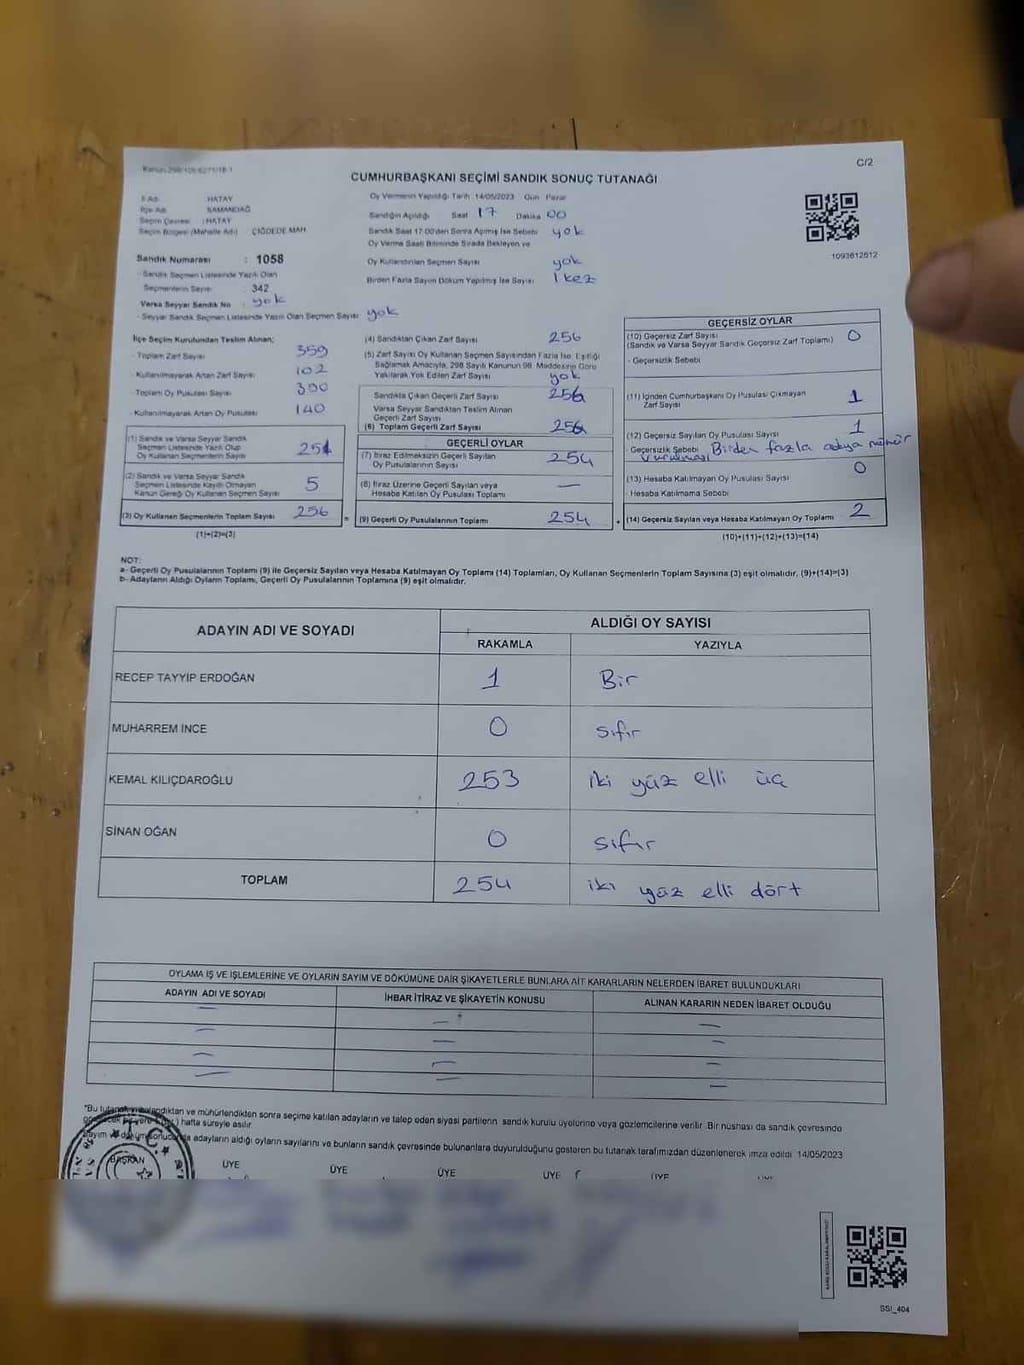 Kanun 298/105-6271/18-1
C/2
CUMHURBAŞKANI SEÇİMİ SANDIK SONUÇ TUTANAĞI
İl Adı : HATAY
İlçe Adı : SAMANDAĞ
Seçim Çevresi : HATAY
Seçim Bölgesi (Mahalle Adı) : ÇİĞDEDE MAH.
Sandık Numarası : 1058
- Sandık Seçmen Listesinde Yazılı Olan
Seçmenlerin Sayısı : 342
Varsa Seyyar Sandık No : yok
- Seyyar Sandık Seçmen Listesinde Yazılı Olan Seçmen Sayısı: yok
Oy Vermenin Yapıldığı Tarih 14/05/2023 Gün Pazar
Sandığın Açıldığı Saat 17 Dakika 00
Sandık Saat 17:00'den Sonra Açılmış İse Sebebi yok
Oy Verme Saati Bitiminde Sırada Bekleyen ve
Oy Kullandırılan Seçmen Sayısı yok
Birden Fazla Sayım Döküm Yapılmış İse Sayısı 1 kez
1093612612
İlçe Seçim Kurulundan Teslim Alınan;
- Toplam Zarf Sayısı 359
- Kullanılmayarak Artan Zarf Sayısı 102
- Toplam Oy Pusulası Sayısı 390
- Kullanılmayarak Artan Oy Pusulası 140
(1) Sandık ve Varsa Seyyar Sandık
Seçmen Listesinde Yazılı Olup
Oy Kullanan Seçmenlerin Sayısı 251
(2) Sandık ve Varsa Seyyar Sandık
Seçmen Listesinde Kayıtlı Olmayan
Kanun Gereği Oy Kullanan Seçmen Sayısı 5
(3) Oy Kullanan Seçmenlerin Toplam Sayısı 256
(1)+(2)=(3)
(4) Sandıktan Çıkan Zarf Sayısı 256
(5) Zarf Sayısı Oy Kullanan Seçmen Sayısından Fazla İse, Eşitliği
Sağlamak Amacıyla, 298 Sayılı Kanunun 98. Maddesine Göre
Yakılarak Yok Edilen Zarf Sayısı yok
Sandıkta Çıkan Geçerli Zarf Sayısı 256
Varsa Seyyar Sandıktan Teslim Alınan
Geçerli Zarf Sayısı
(6) Toplam Geçerli Zarf Sayısı 256
GEÇERLİ OYLAR
(7) İtiraz Edilmeksizin Geçerli Sayılan
Oy Pusulalarının Sayısı 254
(8) İtiraz Üzerine Geçerli Sayılan veya
Hesaba Katılan Oy Pusulası Toplamı —
= (9) Geçerli Oy Pusulalarının Toplamı 254
GEÇERSİZ OYLAR
(10) Geçersiz Zarf Sayısı 0
(Sandık ve Varsa Seyyar Sandık Geçersiz Zarf Toplamı)
- Geçersizlik Sebebi
(11) İçinden Cumhurbaşkanı Oy Pusulası Çıkmayan
Zarf Sayısı 1
(12) Geçersiz Sayılan Oy Pusulası Sayısı 1
- Geçersizlik Sebebi Birden fazla adya mühür
vurulması
(13) Hesaba Katılmayan Oy Pusulası Sayısı 0
- Hesaba Katılmama Sebebi
+ (14) Geçersiz Sayılan veya Hesaba Katılmayan Oy Toplamı 2
(10)+(11)+(12)+(13)=(14)
NOT:
a- Geçerli Oy Pusulalarının Toplamı (9) ile Geçersiz Sayılan veya Hesaba Katılmayan Oy Toplamı (14) Toplamları, Oy Kullanan Seçmenlerin Toplam Sayısına (3) eşit olmalıdır, (9)+(14)=(3)
b- Adayların Aldığı Oyların Toplamı, Geçerli Oy Pusulalarının Toplamına (9) eşit olmalıdır.
ADAYIN ADI VE SOYADI
ALDIĞI OY SAYISI
RAKAMLA YAZIYLA
RECEP TAYYİP ERDOĞAN 1 Bir
MUHARREM İNCE 0 sıfır
KEMAL KILIÇDAROĞLU 253 iki yüz elli üç
SİNAN OĞAN 0 sıfır
TOPLAM 254 iki yüz elli dört
OYLAMA İŞ VE İŞLEMLERİNE VE OYLARIN SAYIM VE DÖKÜMÜNE DAİR ŞİKAYETLERLE BUNLARA AİT KARARLARIN NELERDEN İBARET BULUNDUKLARI
ADAYIN ADI VE SOYADI İHBAR İTİRAZ VE ŞİKAYETİN KONUSU ALINAN KARARIN NEDEN İBARET OLDUĞU
"Bu tutanak imzalandıktan ve mühürlendikten sonra seçime katılan adayların ve talep eden siyasi partilerin sandık kurulu üyelerine veya gözlemcilerine verilir. Bir nüshası da sandık çevresinde
hafta süreyle asılır.
Sayım ve döküm sonucunda adayların aldığı oyların sayılarını ve bunların sandık çevresinde bulunanlara duyurulduğunu gösteren bu tutanak tarafımızdan düzenlenerek imza edildi. 14/05/2023
T.C.
BAŞKAN ÜYE ÜYE ÜYE ÜYE ÜYE
SSI_404